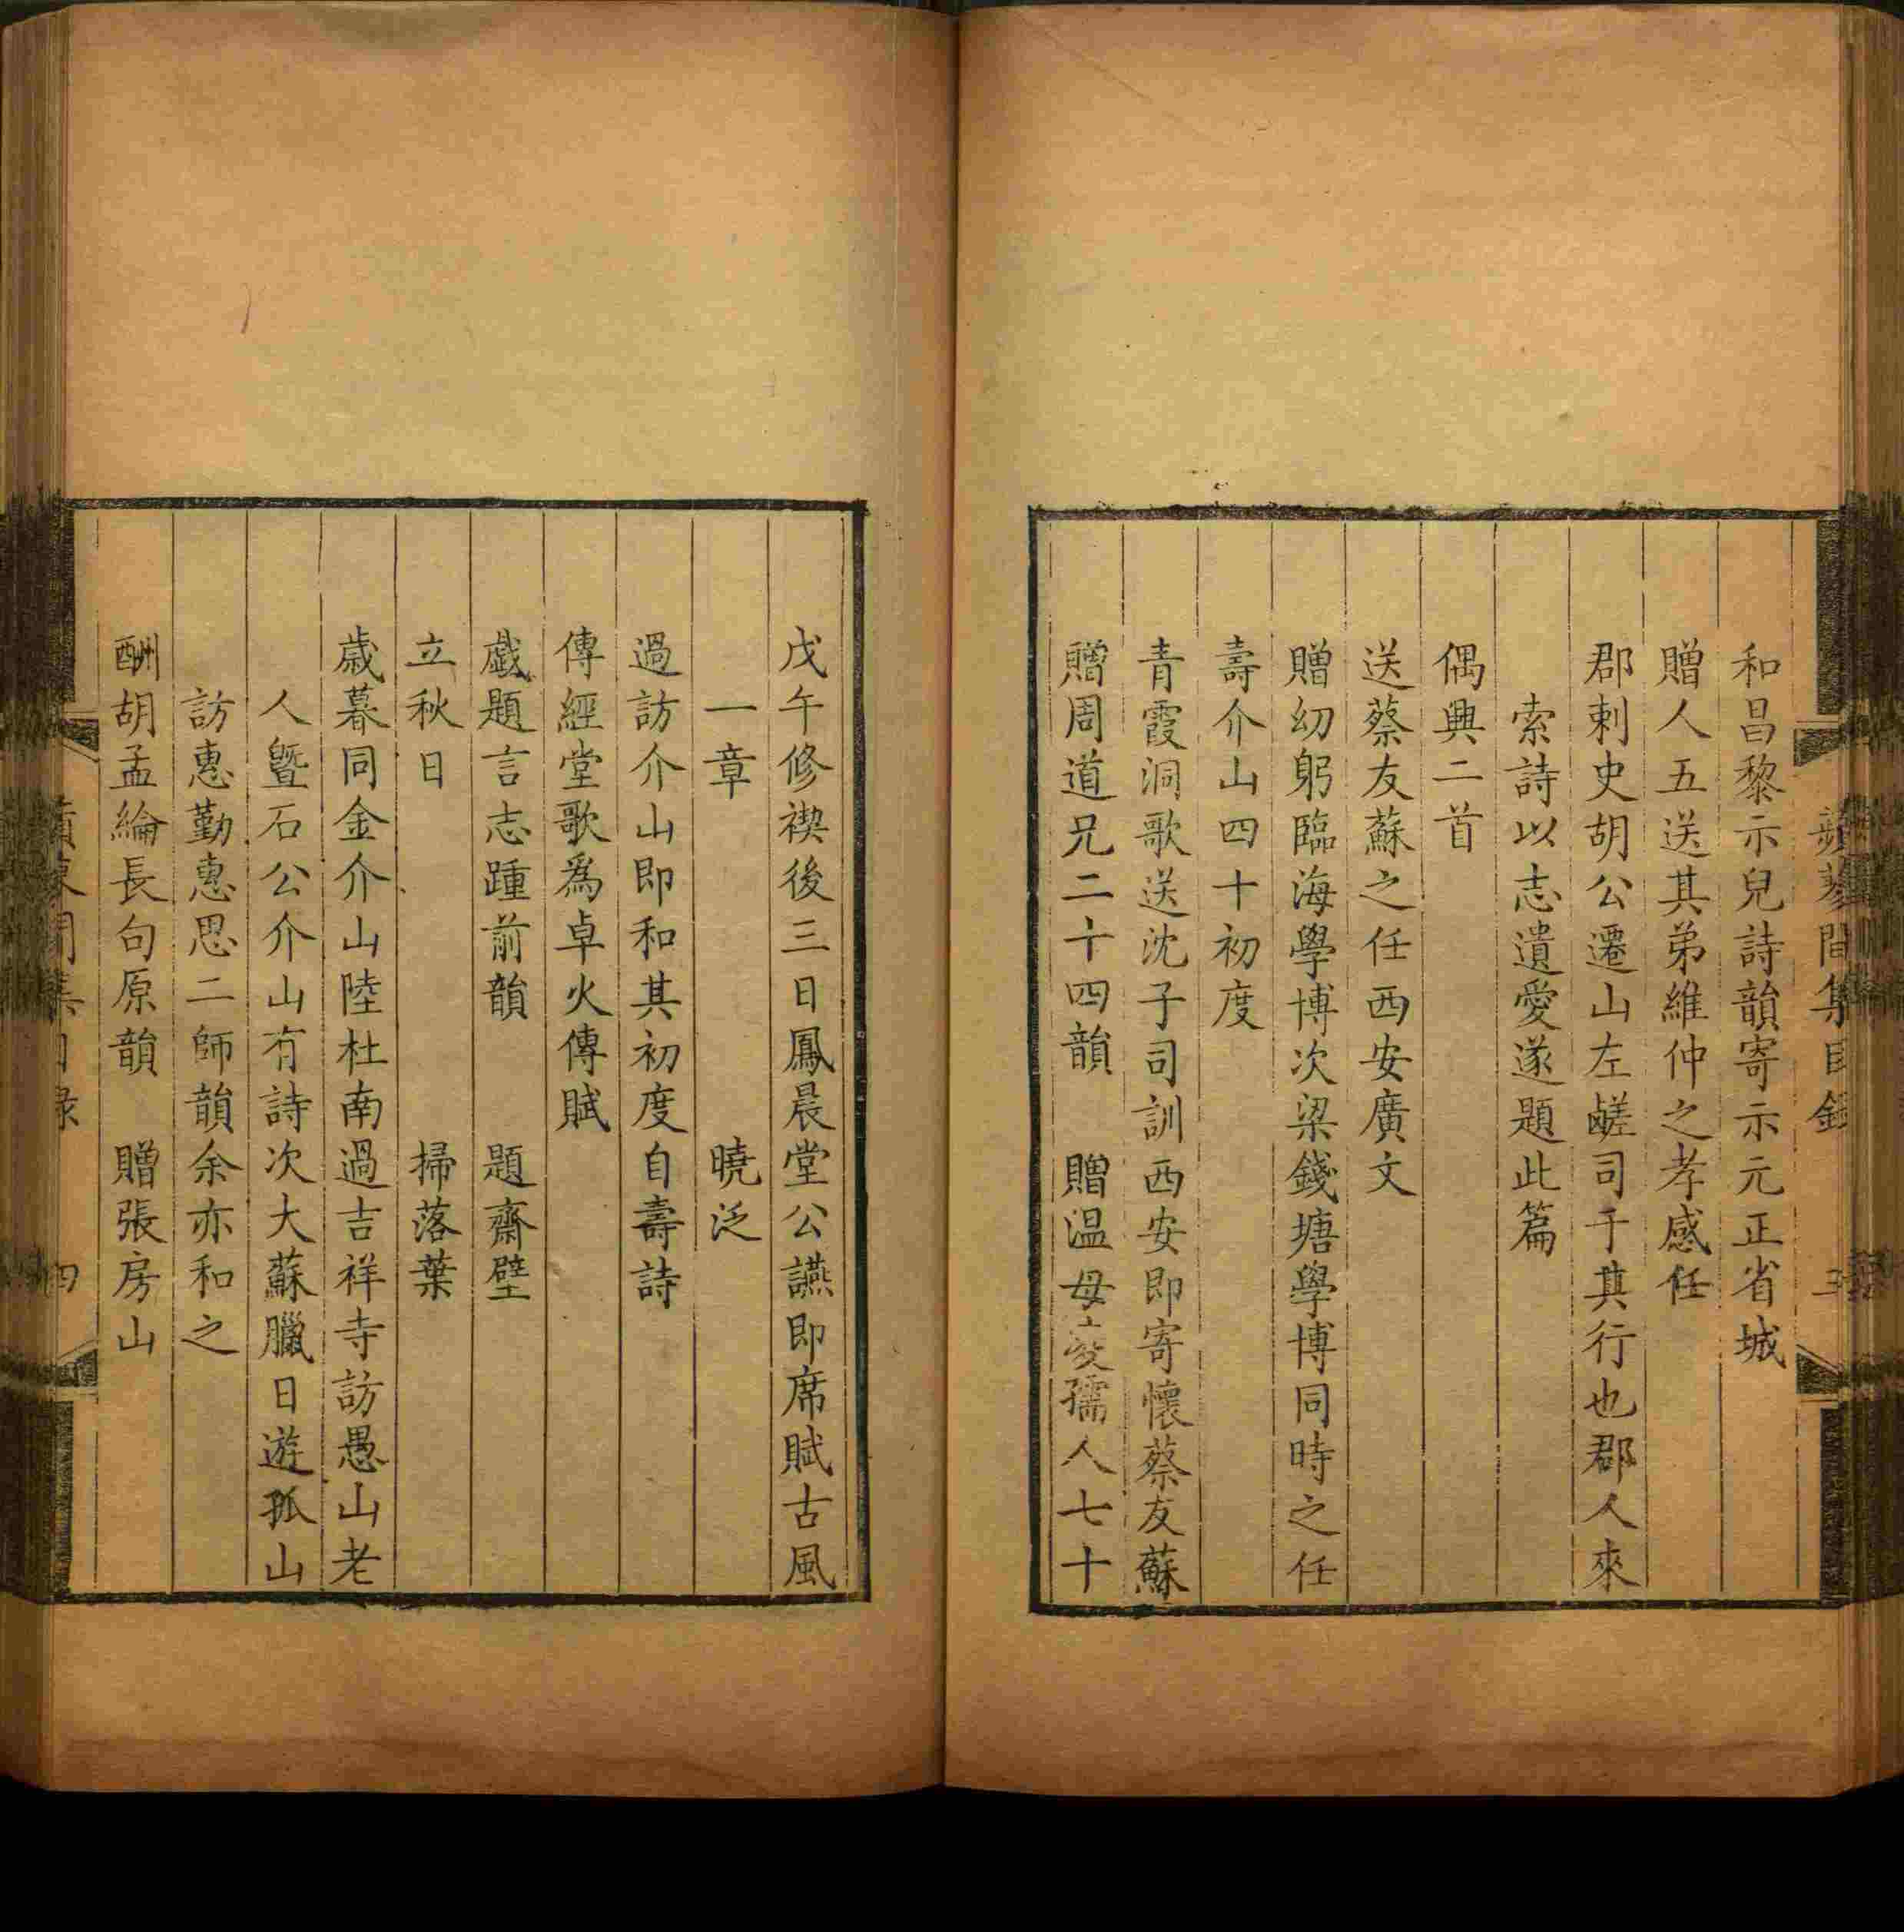 和昌黎示兒詩韻寄示元正省城
贈人五送其弟維仲之孝感任
郡刺史胡公遷山左鹺司于其行也郡人來
索詩以志遺愛遂題此篇
偶興二首
送蔡友蘇之任西安廣文
贈幼躬臨海學博次梁錢塘學博同時之任
壽介山四十初度
青霞洞歌送沈子司訓西安即寄懷蔡友蘇
贈周道兄二十四韻　贈温母孺人七十
間集目錄　三
戊午修禊後三日鳳晨堂公讌即席賦古風
一章　曉泛
過訪介山即和其初度自壽詩
傳經堂歌爲卓火傳賦
戲題言志踵前韻　題齋壁
立秋日　掃落葉
歲暮同金介山陸杜南過吉祥寺訪愚山老
人暨石公介山有詩次大蘇臘日遊孤山
訪惠勤惠思二師韻余亦和之
酬胡孟綸長句原韻　贈張房山
間集目錄　四